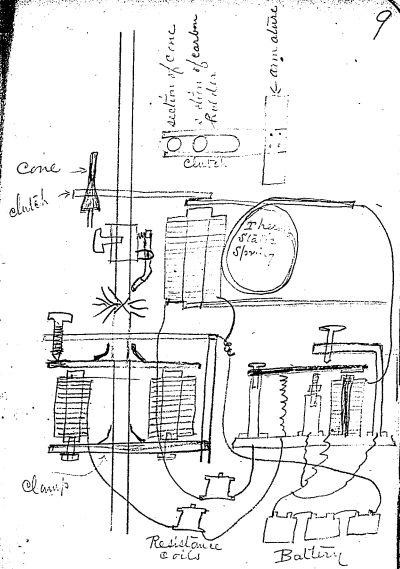 9
section of cone
section of carbon
holder
armature
clutch
cone
clutch
This
static
spring
clamp
Resistance
coils
Battery